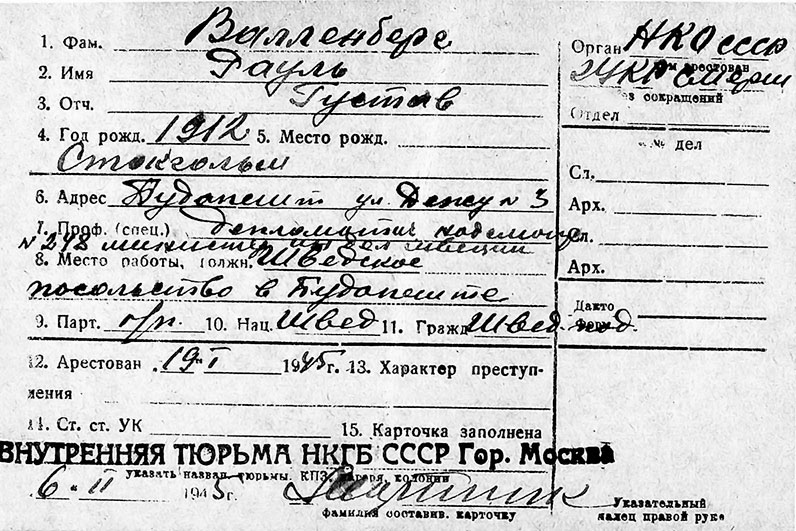 1. Фам. Валленберг
2. Имя Рауль
3. Отч. Густав
4. Год рожд. 1912 5. Место рожд.
Стокгольм
6. Адрес Будапешт ул. №3
7. Проф. (спец.)
8. Место работы, должн. Шведское
посольство в Будапеште
9. Парт. б/п. 10. Нац. Швед 11. Гражд Швед. под.
12. Арестован 19-I 1945г. 13. Характер преступ-
ления
14. Ст. ст. УК 15. Карточка заполнена
ВНУТРЕННЯЯ ТЮРЬМА НКГБ СССР Гор. Москва
указать назван. тюрьмы, КПЗ, колонии
6.-II 1945г.
фамилия составив. карточку
Орган НКО СССР
арестован
УКР Смерш
без сокращений
Отдел
дел
Сл.
Арх.
Сл.
Арх.
Дакто
Указательный
палец правой руки